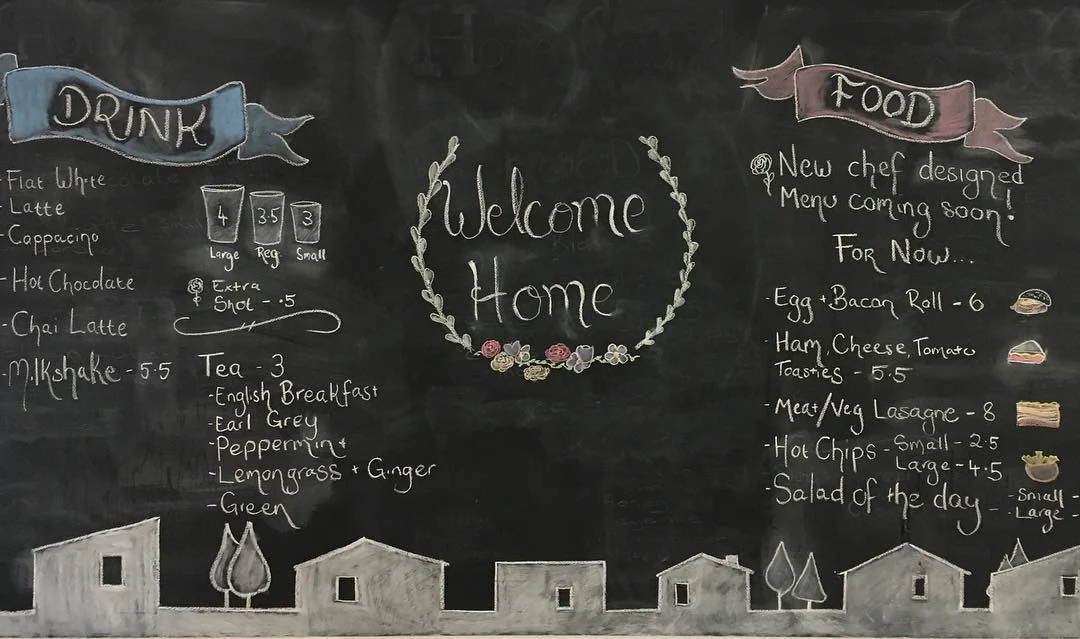 DRINK
- Flat White
- Latte
- Cappacino
- Hot Chocolate
- Chai Latte
- Milkshake - 5.5
4 3.5 3
Large Reg. Small
Extra
Shot - .5
Tea - 3
- English Breakfast
- Earl Grey
- Peppermint
- Lemongrass + Ginger
- Green
Welcome
Home
FOOD
New chef designed
Menu coming soon!
For Now...
- Egg + Bacon Roll - 6
- Ham, Cheese, Tomato
Toasties - 5.5
- Meat/Veg Lasagne - 8
- Hot Chips - Small - 2.5
Large - 4.5
- Salad of the day - - Small -
- Large -